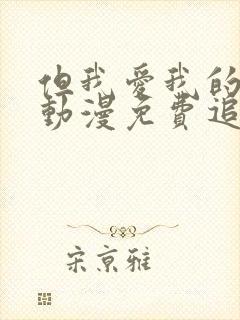 但我愛我的
動漫免費追
宋京雅